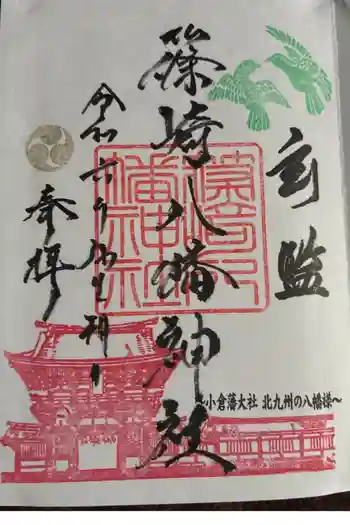 玄監
篠崎八幡神社
篠崎八幡神社
令和六年
奉拝
〜小倉藩大社 北九州の八幡様〜